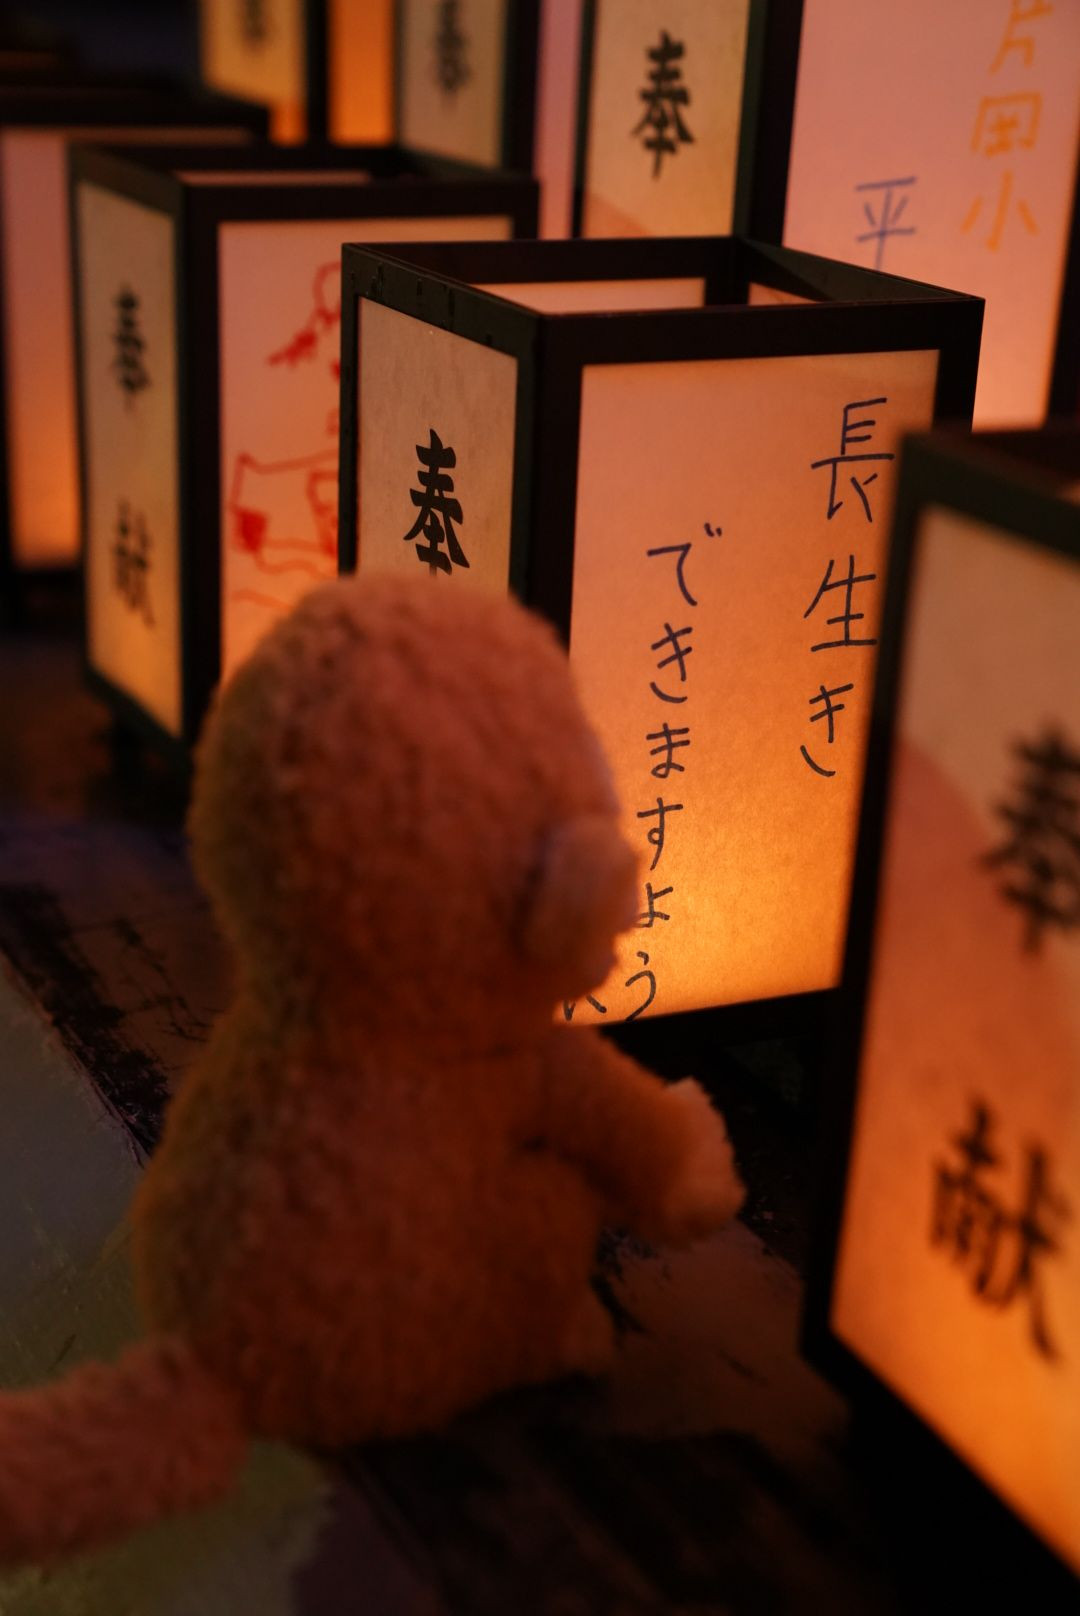 長生き
できますよう
奉
奉
献
奉
献
奉
奉
片岡小
平